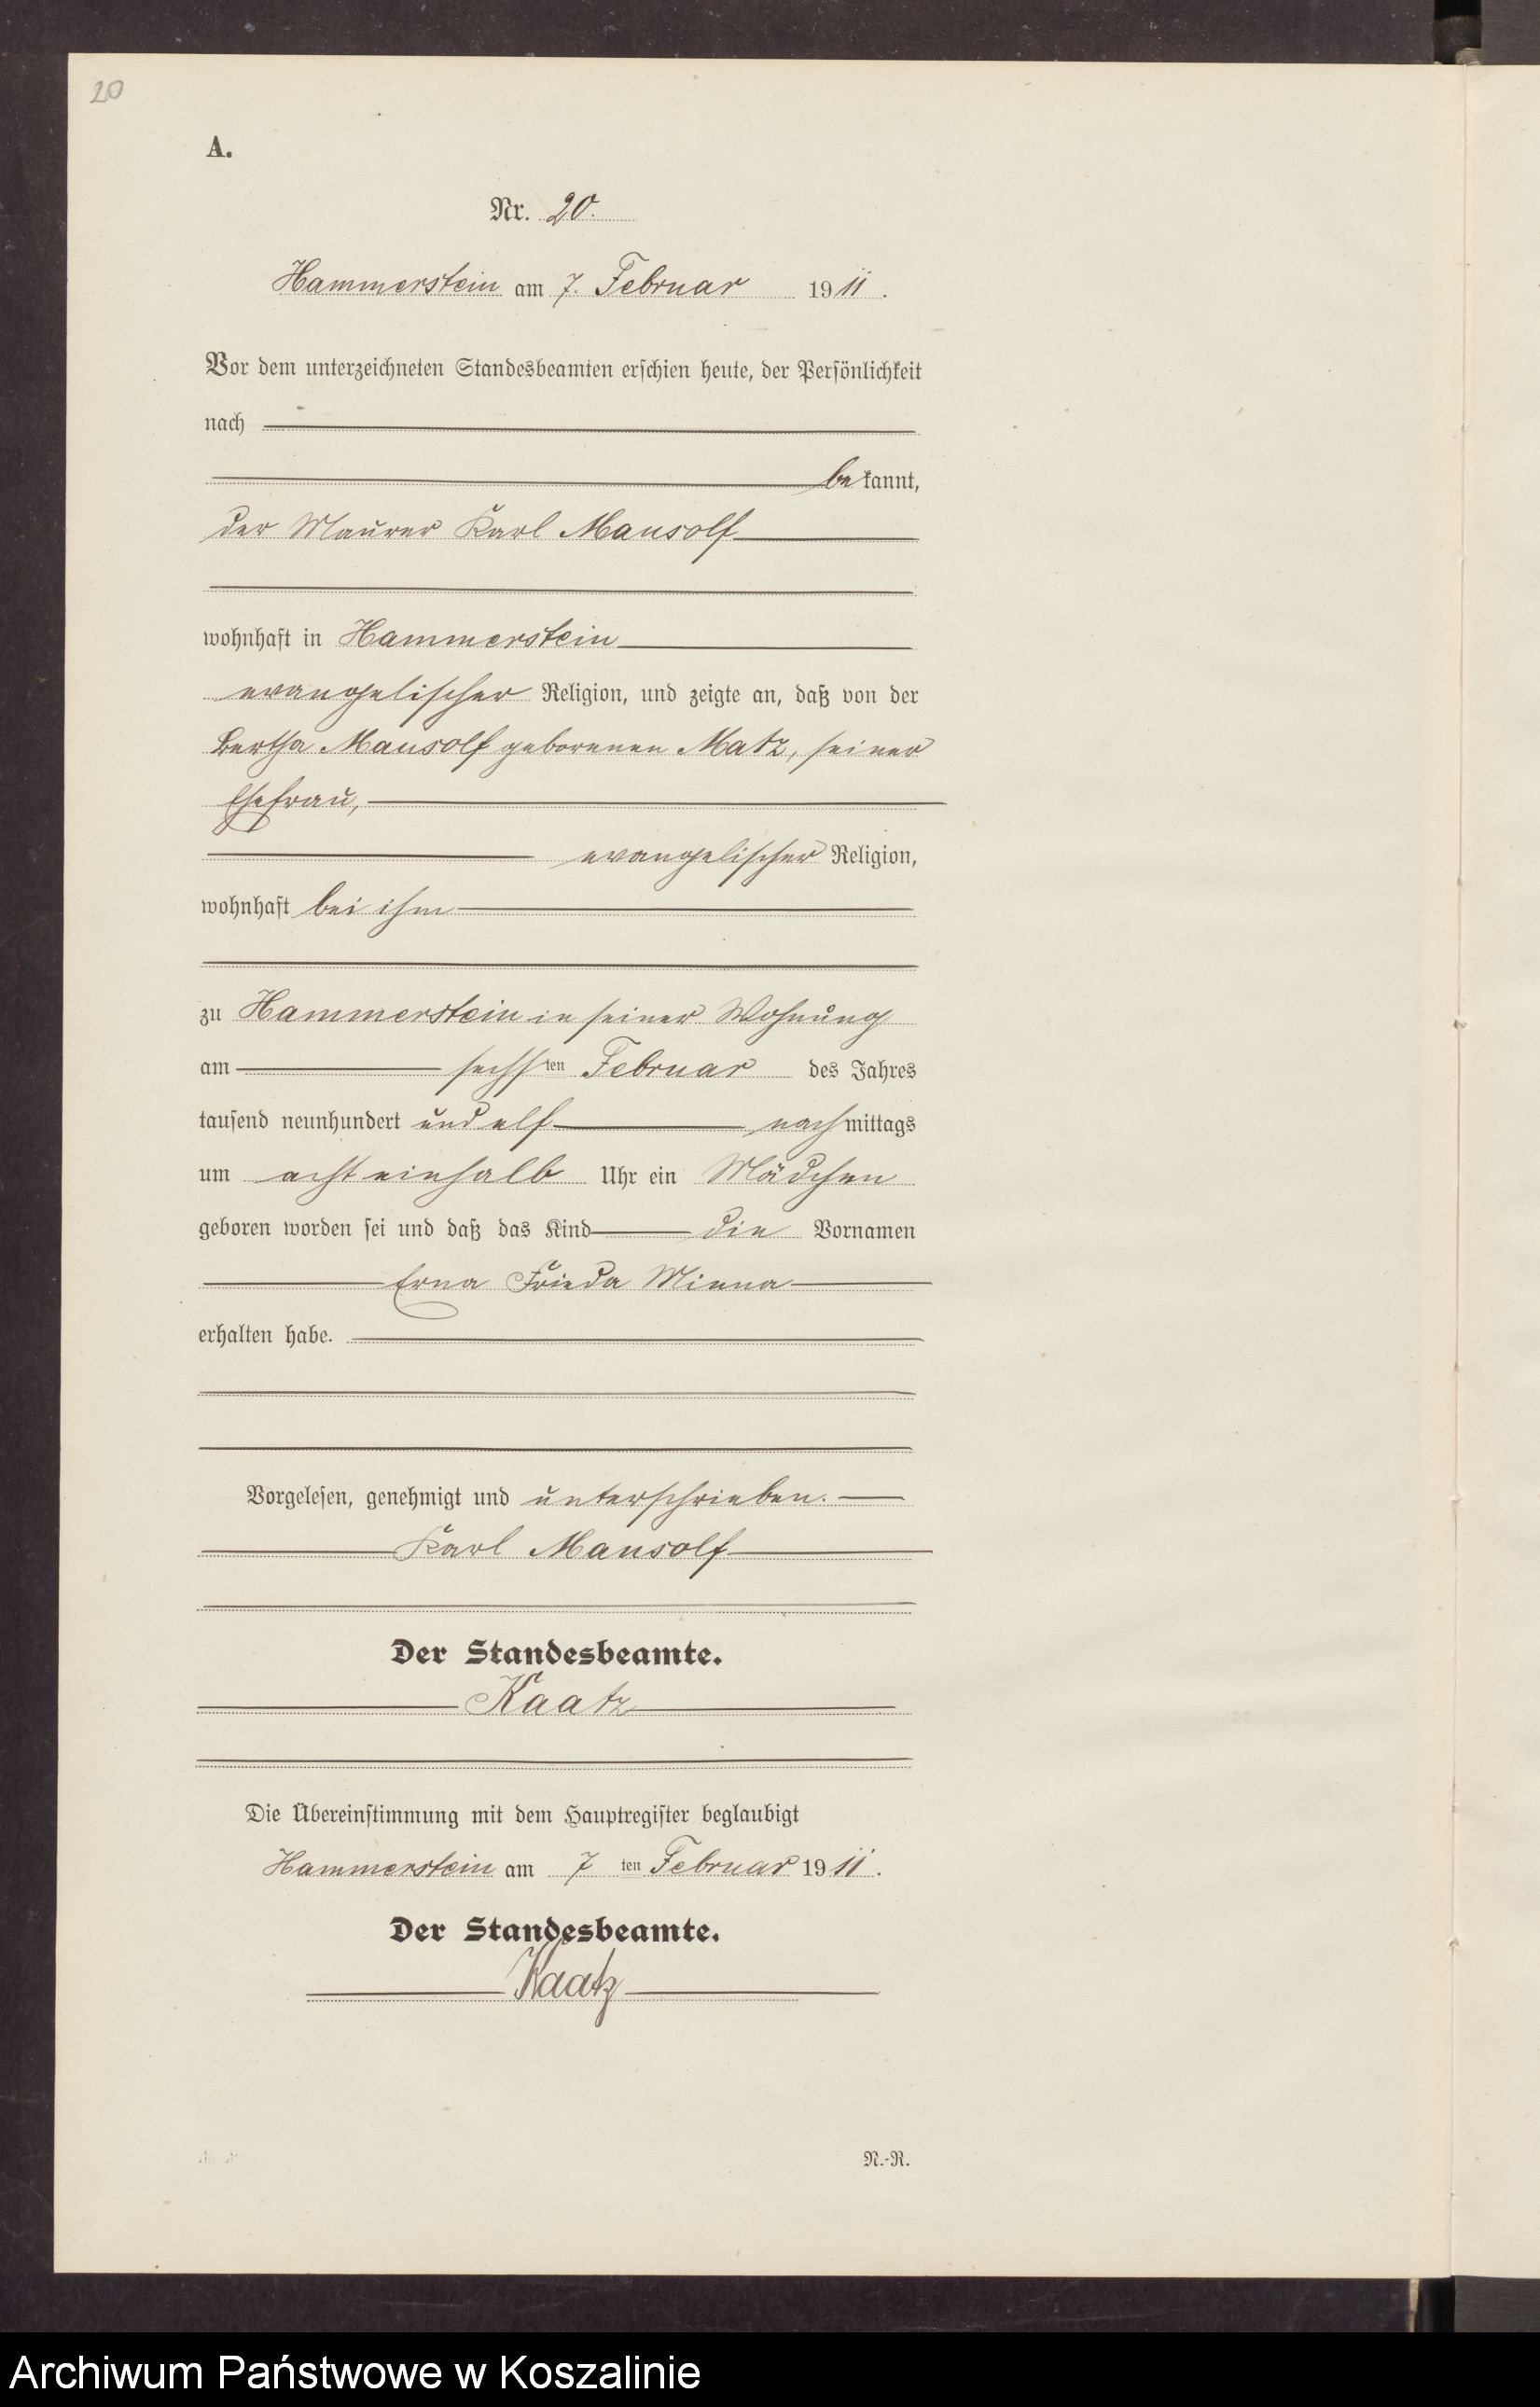 20
A.
Nr. 20.
Hammerstein am 7. Februar 1911.
Vor dem unterzeichneten Standesbeamten erschien heute, der Persönlichkeit
nach
bekannt,
der Maurer Karl Mansolf
wohnhaft in Hammerstein
evangelischer Religion, und zeigte an, daß von der
Bertha Mansolf geborenen Matz, seiner
Ehefrau,
evangelischer Religion,
wohnhaft bei ihm
zu Hammerstein in seiner Wohnung
am sechsten Februar des Jahres
tausend neunhundert und elf nachmittags
um acht einhalb Uhr ein Mädchen
geboren worden sei und daß das Kind die Vornamen
Erna Frieda Minna
erhalten habe.
Vorgelesen, genehmigt und unterschrieben.
Karl Mansolf
Der Standesbeamte.
Kaatz
Die Übereinstimmung mit dem Hauptregister beglaubigt
Hammerstein am 7ten Februar 1911.
Der Standesbeamte.
Kaatz
N.-R.
Archiwum Państwowe w Koszalinie